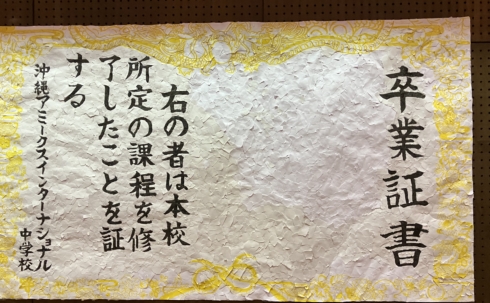 卒業証書
右の者は本校
所定の課程を修
了したことを証
する
沖縄アミークスインターナショナル
中学校